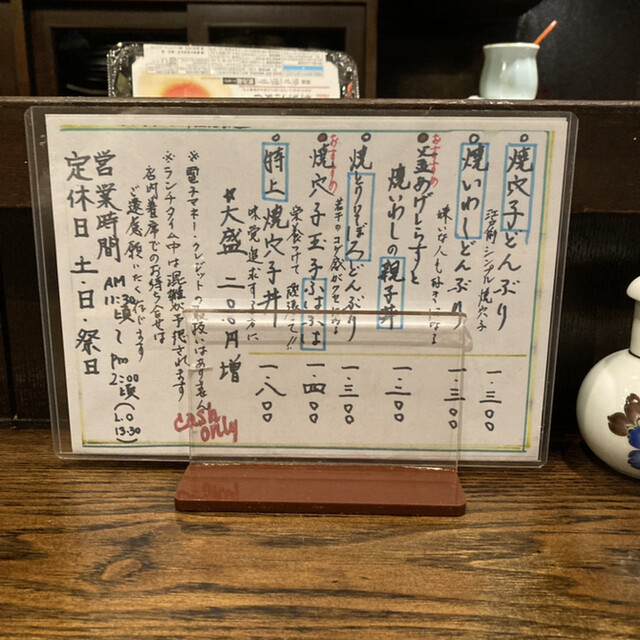 焼穴子どんぶり
江戸前・シンプル焼穴子
一.三〇〇
焼いわしどんぶり
嫌いな人も好きになる
一.三〇〇
おすすめ
釜あげしらすと
焼いわしの親子丼
一.二〇〇
焼とりそぼろどんぶり
一.三〇〇
おすすめ
焼穴子玉子ふはふは
栄養つけて
一.四〇〇
特上焼穴子丼
味覚追求する方に
一.八〇〇
大盛 二〇〇円増
※電子マネー・クレジットの取扱いはありません
cash only
※ランチタイム中は混雑が予想されます
店内着席でのお待ち合せは
ご遠慮願いたく存じます
営業時間 AM 11:30頃〜PM 2:00頃(L.O 13:30)
定休日 土・日・祭日